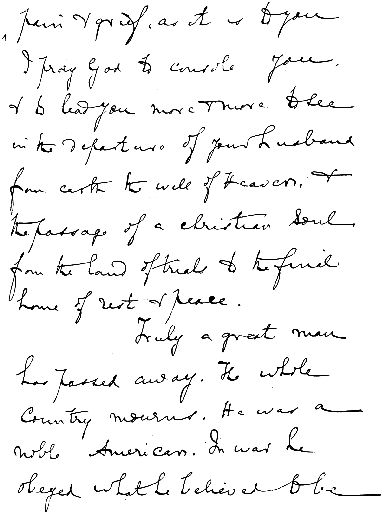 pain & grief, as it is to you
I pray God to console you.
& to lead you more & more to see
in the departure of your husband
from earth the will of Heaven, &
the passage of a christian soul
from the land of trials to the final
home of rest & peace.
Truly a great man
has passed away. The whole
country mourns. He was a
noble American. In war he
obeyed what he believed to be